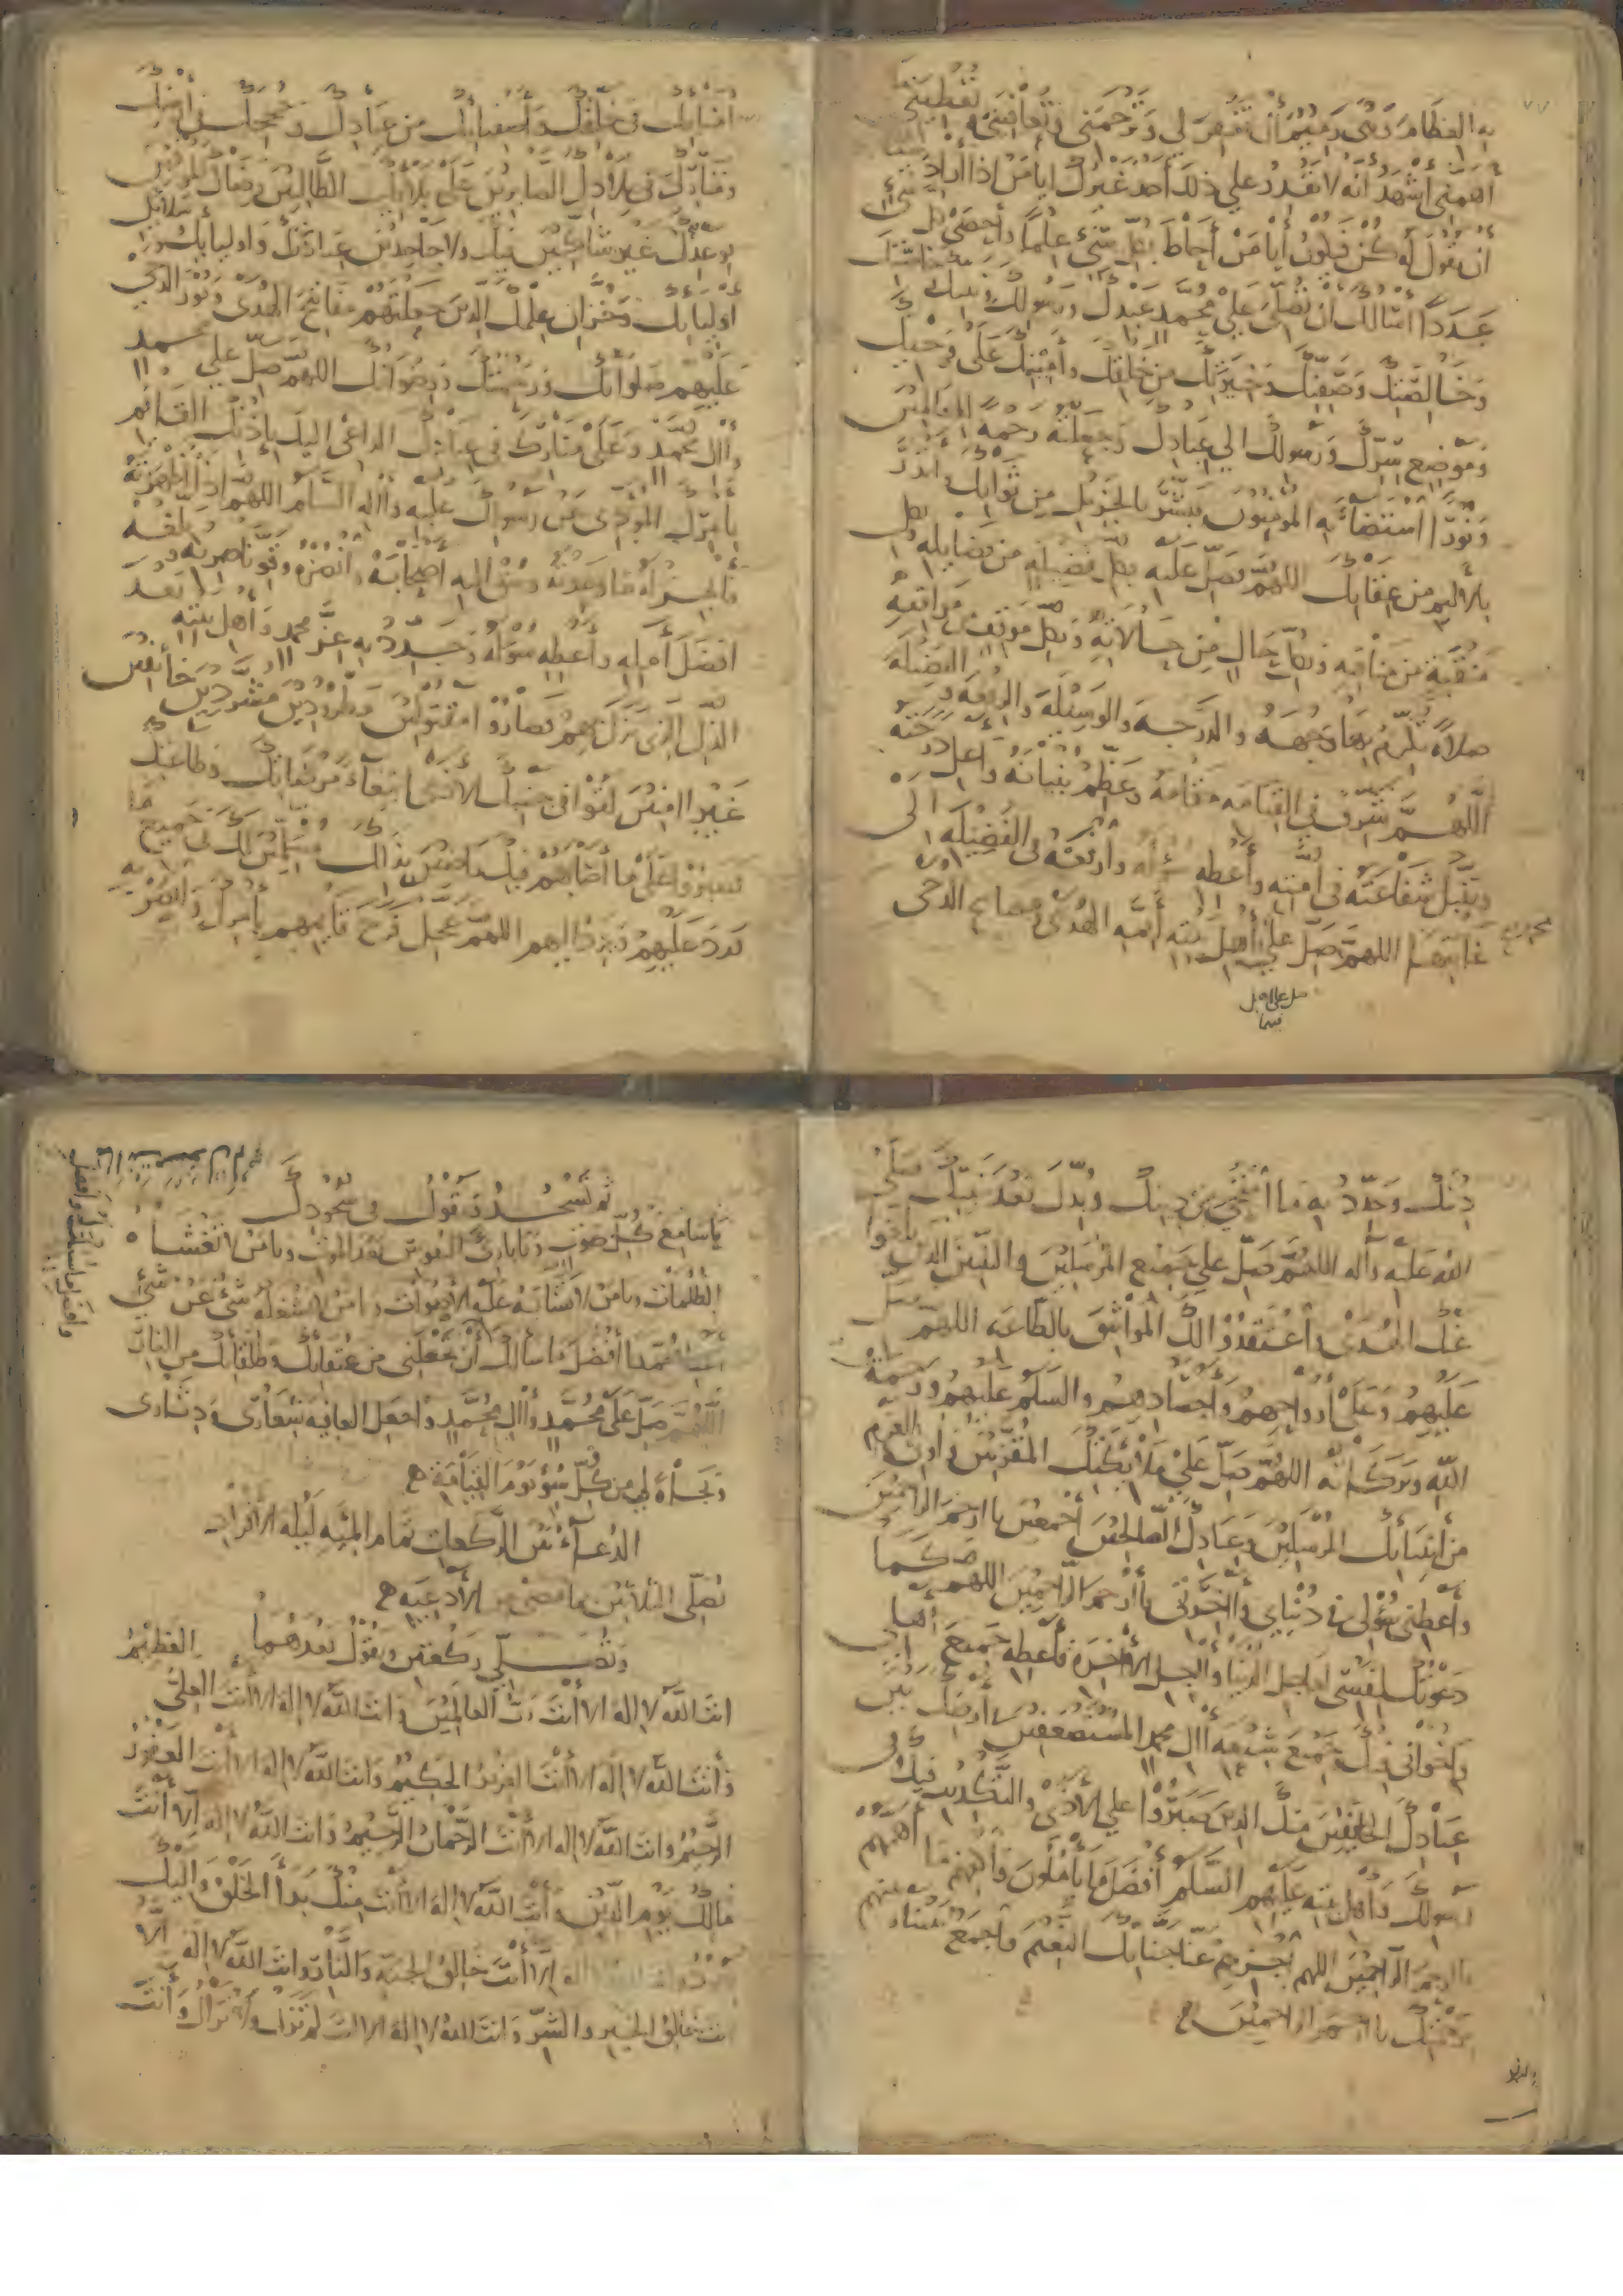 به العظام وهى رميم أن تغفر لي وترحمني وتعافيني وتعطيني
أهمني أشهد أنه لا يقدر على ذلك أحد غيرك أيا من إذا أراد شيئا
أن يقول له كن فيكون أيا من أحاط بكل شيء علما وأحصى كل
عددا أسألك أن تصلى على محمد عبدك ورسولك ونبيك
وخالصتك وصفيك وخيرتك من خلقك وأمينك على وحيك
وموضع سرك ورسولك الى عبادك وجعلته رحمة للعالمين
ونورا استضاء به المؤمنون فبشر بالجزيل من ثوابك وأنذر
بالأليم من عقابك اللهم فصل عليه بكل فضيلة من فضايله وبكل
منقبة من مناقبه وبكل حال من حالاته وبكل موقف من مواقفه
صلاة تكرم بها وجهه والدرجة والوسيلة والرفعة والفضيلة
اللهم شرف في القيامة مقامه وعظم بنيانه وأعل درجته
وتقبل شفاعته في أمته وأعطه سؤله وارفعه في الفضيلة الى
غايتها اللهم صل على أهل بيته أئمة الهدى ومصابيح الدجى
أمنايك في خلقك وأصفيايك من عبادك وحججك في أرضك
ومنارك في بلادك الصابرين على بلائك الطالبين رضاك الموفين
بوعدك غير شاكين فيك ولا جاحدين عبادتك وأوليايك وسلايل
أوليايك وخزان علمك الذين جعلتهم مفاتيح الهدى ونور الدجى
عليهم صلواتك ورحمتك ورضوانك اللهم صل على محمد
وآل محمد وعلى منارك في عبادك الداعي اليك بإذنك القائم
بأمرك المؤدى عن رسولك عليه وآله السلام اللهم إذا أظهرته
فأنجز له ما وعدته وسق اليه أصحابه وانصره وقو ناصريه وبلغه
أفضل أمله وأعطه سؤله وجدد به عن محمد وأهل بيته بعد
الذل الذى نزل بهم فصاروا مقتولين مطرودين مشردين خائفين
غير آمنين لقوا في جنبك الأذى ابتغاء مرضاتك وطاعتك
فصبروا على ما أصابهم فيك راضين بذلك مسلمين لك في جميع ما
ورد عليهم ويرد اليهم اللهم عجل فرج قايمهم بأمرك وانصره
دينك وجدد به ما امتحى من دينك وبدل بعد نبيك صلى
الله عليه وآله اللهم صل على جميع المرسلين والنبيين الذين بلغوا
عنك الهدى واعتقدوا لك المواثيق بالطاعة اللهم صل
عليهم وعلى أرواحهم وأجسادهم والسلم عليهم ورحمة
الله وبركاته اللهم صل على ملائكتك المقربين وأولي العزم
من أنبيائك المرسلين وعبادك الصالحين أجمعين يا أرحم الراحمين
وأعطني سؤلى في دنياي وآخرتى يا أرحم الراحمين اللهم كما
دعوتك لنفسى لعاجل الدنيا وآجل الآخرة فأعطه جميع أهلى
وإخواني فيك وجميع شيعة آل محمد المستضعفين في أرضك بين
عبادك الخائفين منك الذين صبروا على الأذى والتكذيب فيك وفى
رسولك وأهل بيته عليهم السلم أفضل ما يأملون واكفهم ما أهمهم
يا أرحم الراحمين اللهم اجزهم عنا جنانك النعيم واجمع بيننا وبينهم
برحمتك يا أرحم الراحمين
ثم تسجد وتقول في سجودك
يا سامع كل صوت ويا بارئ النفوس بعد الموت ويا من لا تغشاه
الظلمات ويا من لا تتشابه عليه الأصوات ويا من لا يشغله شئ عن شئ
محمدا أفضل ما سألك أن تجعلني من عتقايك وطلقايك من النار
اللهم صل على محمد وآل محمد واجعل العافية شعارى ودثارى
ونجاة لي من كل سوء يوم القيامة
الدعاء بين الركعات تمام المئة ليلة الأفراد
تصلى الثلاثين ما مضى من الأدعية
وتصلي ركعتين وتقول بعدهما
انت الله لا اله الا أنت رب العالمين وانت الله لا إله الا أنت العلي العظيم
وأنت الله لا إله إلا أنت العزيز الحكيم وانت الله لا إله الا أنت الغفور
الرحيم وانت الله لا اله الا أنت الرحمان الرحيم وانت الله لا إله الا أنت
مالك يوم الدين وأنت الله لا اله الا أنت منك بدأ الخلق واليك
يعود وانت الله لا اله إلا أنت خالق الجنة والنار وانت الله لا اله الا
انت خالق الخير والشر وانت الله لا إله الا انت لم تزل ولا تزال وأنت